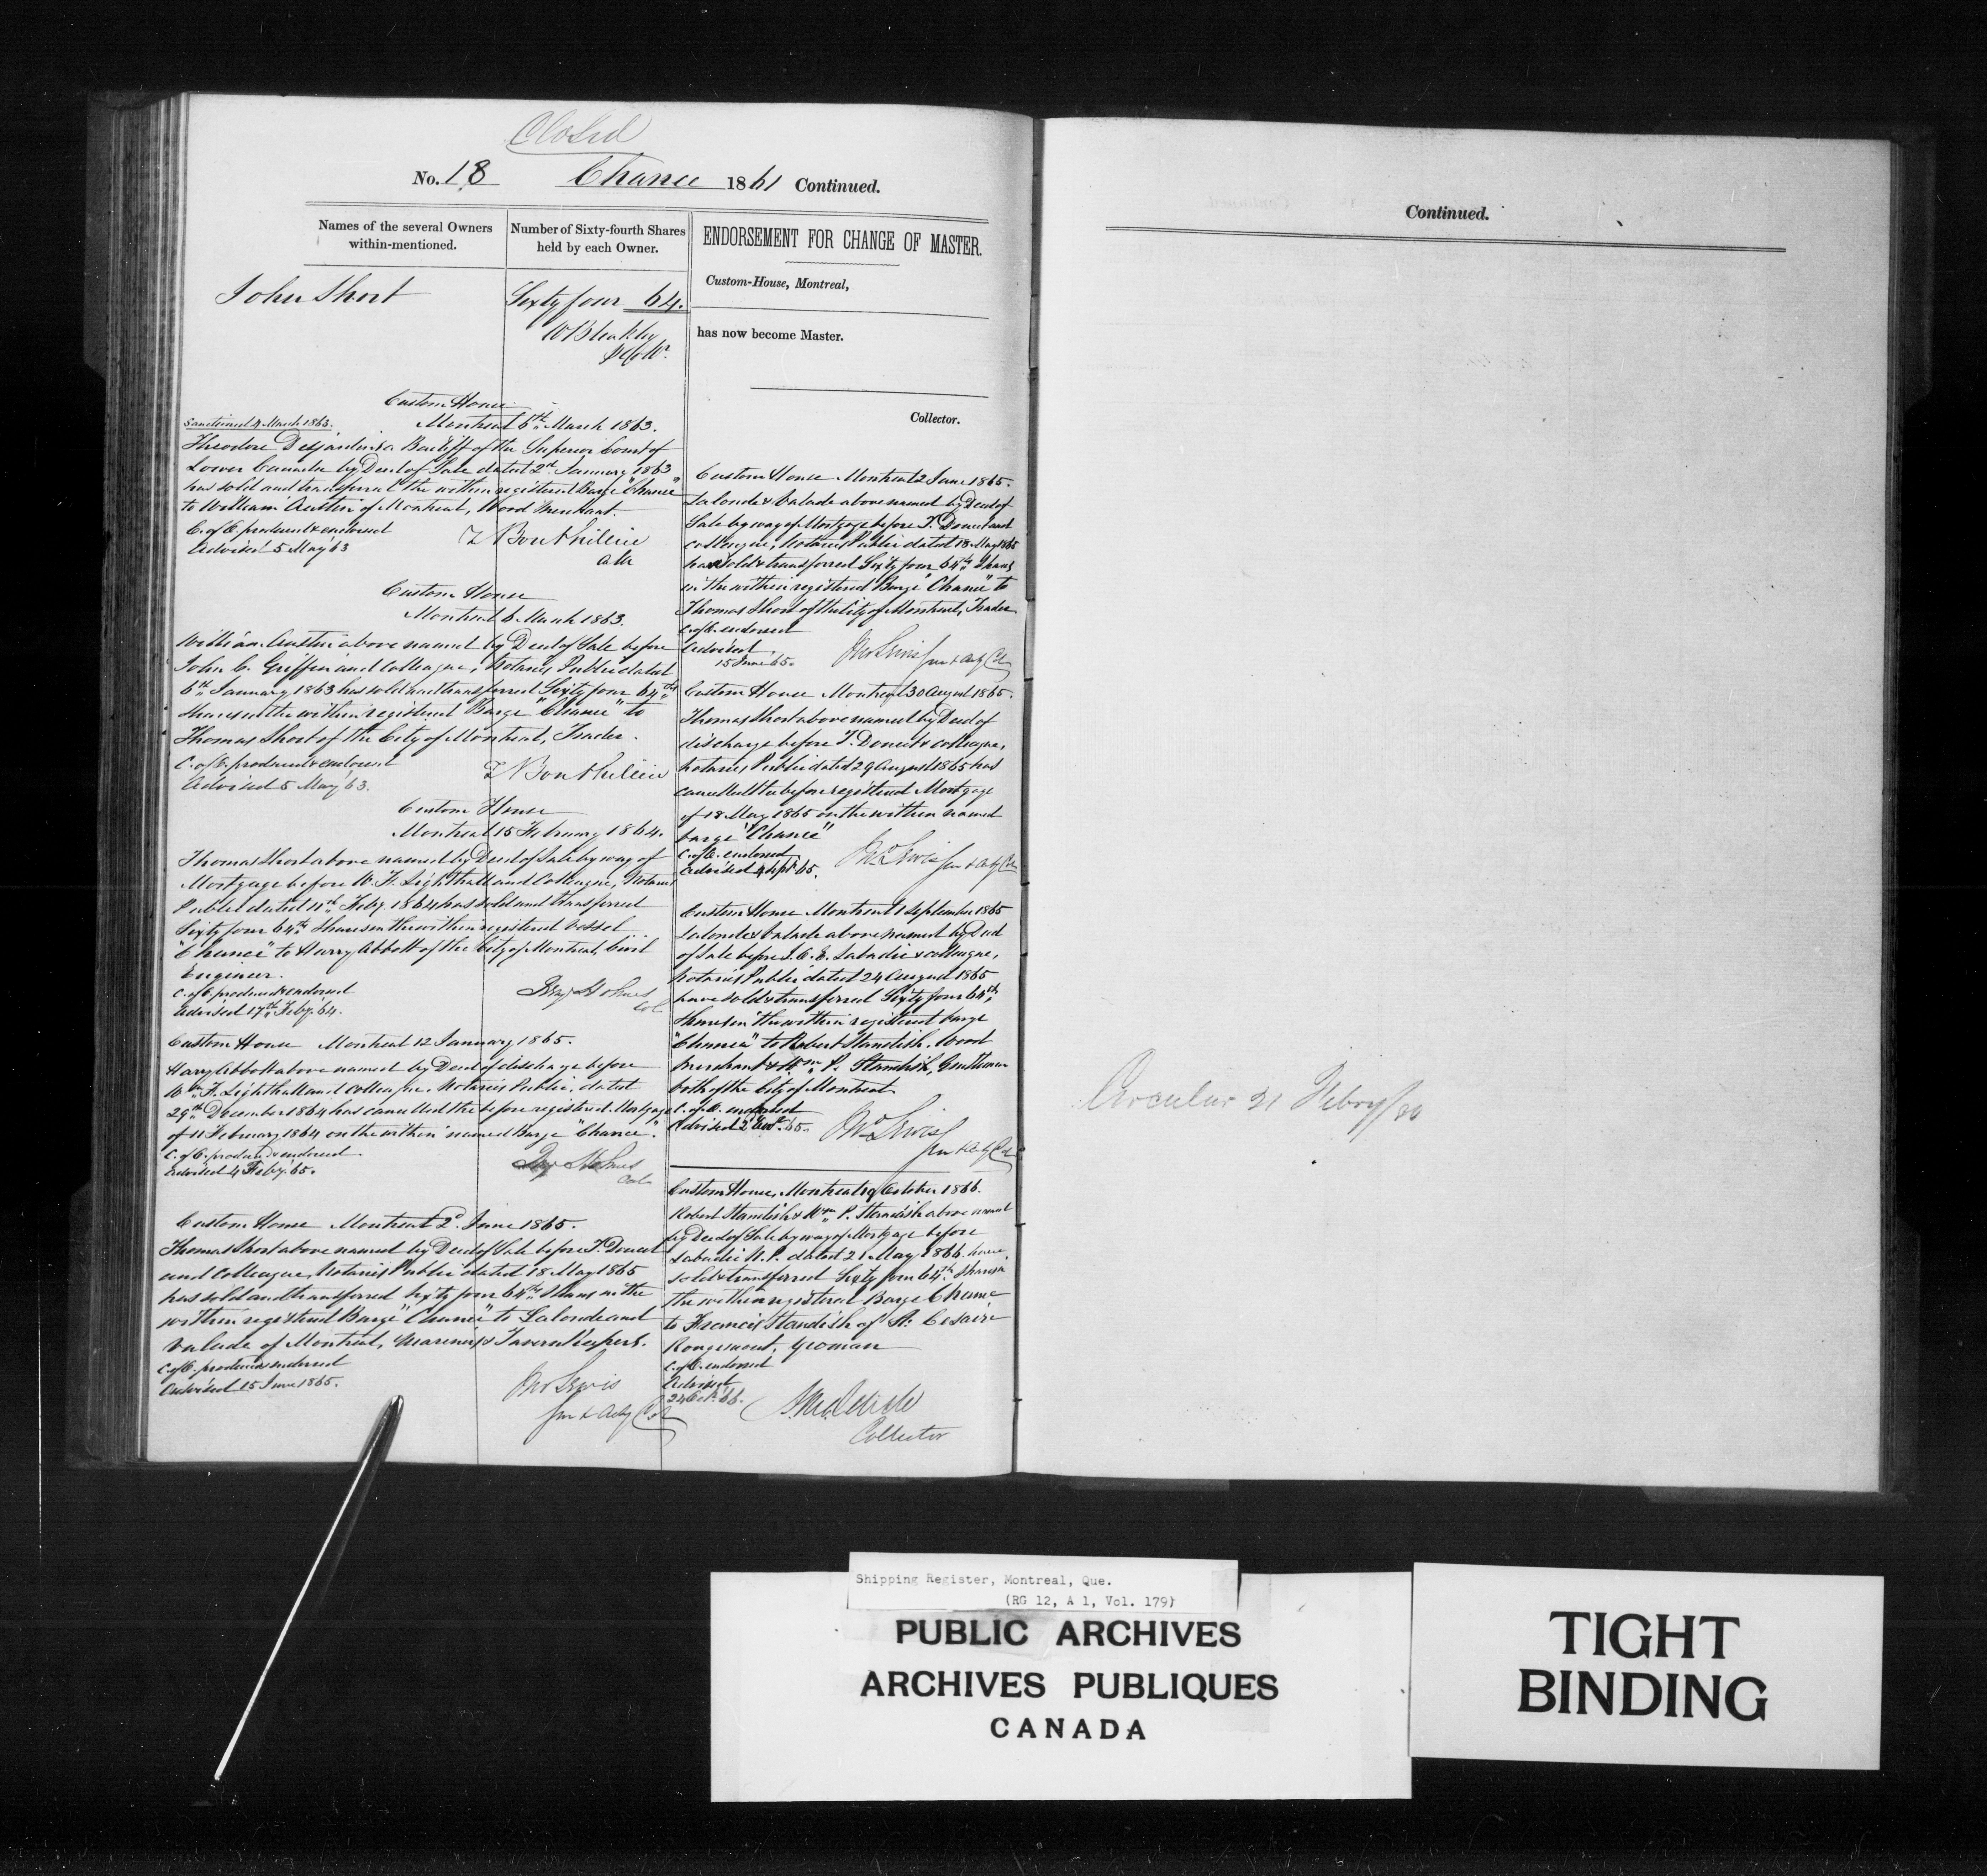 Closed
No. 18 Chance 1861 Continued.
Names of the several Owners within-mentioned.
Number of Sixty-fourth Shares held by each Owner.
John Short
Sixty four 64.
W Bleakley
Custom House
Sanctioned 4 March 1863.
Montreal 6th March 1863.
Theodore Desjardins a Bailiff of the Superior Court of
Lower Canada by Deed of Sale dated 2d January 1863
has sold and transferred the within registered Barge "Chance"
to William Austin of Montreal, Wood Merchant.
C. of E. produced & endorsed
Advised 5 May 63
Z Bouthillier
Custom House
Montreal 6 March 1863.
William Austin above named by Deed of Sale before
John C. Griffin and Colleague, Notaries Public dated
6th January 1863 has sold and transferred Sixty four 64ths
Shares in the within registered Barge "Chance" to
Thomas Short of the City of Montreal, Trader.
C. of E. produced & endorsed
Advised 5 May 63.
Z Bouthillier
Custom House
Montreal 15 February 1864.
Thomas Short above named by Deed of Sale by way of
Mortgage before W. F. Lighthall and Colleague, Notaries
Public dated 11th Feby. 1864 has sold and transferred
Sixty four 64ths Shares in the within registered Vessel
"Chance" to Harry Abbott of the City of Montreal, Civil
Engineer.
C. of E. produced & endorsed
Advised 17th Feby. 64.
Benj Holmes
Col
Custom House Montreal 12 January 1865.
Harry Abbott above named by Deed of discharge before
Wm. F. Lighthall and Colleague, Notaries Public, dated
29th December 1864 has cancelled the before registered Mortgage
of 11 February 1864 on the within named Barge "Chance".
C. of E. produced & endorsed.
Advised 4 Feby. 65.
Benj Holmes
Col
Custom House Montreal 2d. June 1865.
Thomas Short above named by Deed of Sale before T. Doucet
and Colleague, Notaries Public dated 18 May 1865
has sold and transferred Sixty four 64ths Shares in the
within registered Barge "Chance" to Lalonde and
Valade of Montreal, Mariners & Tavern Keepers.
C. of E. produced & endorsed
Advised 15 June 1865.
Jno Lewis
Sur & Actg Col
ENDORSEMENT FOR CHANGE OF MASTER.
Custom-House, Montreal,
has now become Master.
Collector.
Custom House Montreal 2 June 1865.
Lalonde & Valade above named by Deed of
Sale by way of Mortgage before T. Doucet and
colleague, Notaries Public dated 18 May 1865
has sold & transferred Sixty four 64ths Shares
in the within registered Barge "Chance" to
Thomas Short of the City of Montreal, Trader
C. of E. endorsed
Advised
15 June 65.
Jno Lewis Sur & Actg Col
Custom House Montreal 30 August 1865.
Thomas Short above named by Deed of
discharge before T. Doucet & colleague,
Notaries Public dated 29 August 1865 has
cancelled the before registered Mortgage
of 18 May 1865 on the within named
barge "Chance"
C. of E. endorsed
Advised 4 Sept. 65.
Jno Lewis Sur & Actg Col
Custom House Montreal 1 September 1865
Lalonde & Valade above named by Deed
of Sale before J. C. E. Labadie & colleague,
Notaries Public dated 24 August 1865
have sold & transferred Sixty four 64ths
Shares in the within registered barge
"Chance" to Robert Standish, Wood
Merchant & Wm. P. Standish, Gentleman
both of the City of Montreal
C. of E. endorsed
Advised 2 65.
Jno Lewis
Sur & Actg Col
Custom House, Montreal 19 October 1866.
Robert Standish & Wm. P. Standish above named
by Deed of Sale by way of Mortgage before
Labadie N.P. dated 21 May 1866 have
sold & transferred Sixty four 64ths Shares in
the within registered Barge Chance
to Francis Standish of St. Cesaire
Rougemont, Yeoman
C. of E. endorsed
Advised
24 Oct. 66.
Collector
Continued.
Circular 21 Febry/
Shipping Register, Montreal, Que.
(RG 12, A 1, Vol. 179)
PUBLIC ARCHIVES
ARCHIVES PUBLIQUES
CANADA
TIGHT
BINDING